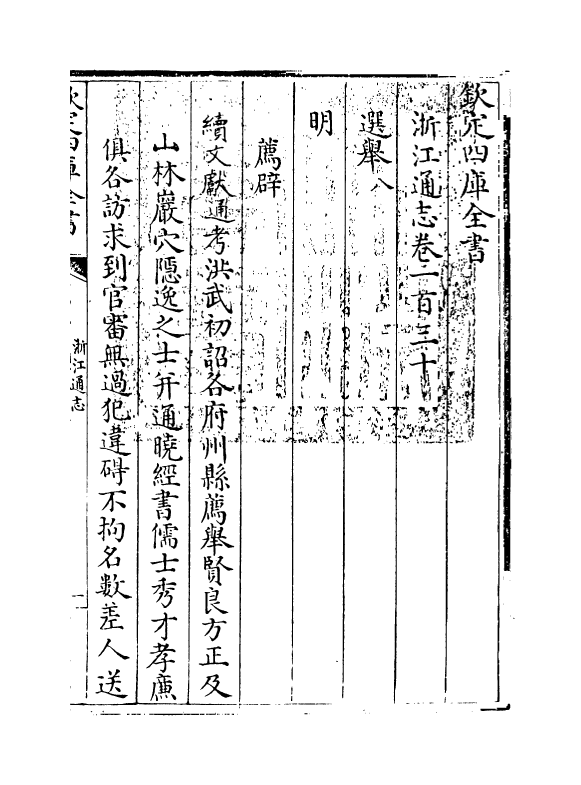 欽定四庫全書
浙江通志卷一百三十
選舉八
明
薦辟
續文獻通考洪武初詔各府州縣薦舉賢良方正及
山林巖穴隱逸之士并通曉經書儒士秀才孝廉
俱各訪求到官審無過犯違碍不拘名數差人送
欽定四庫全書
浙江通志
一